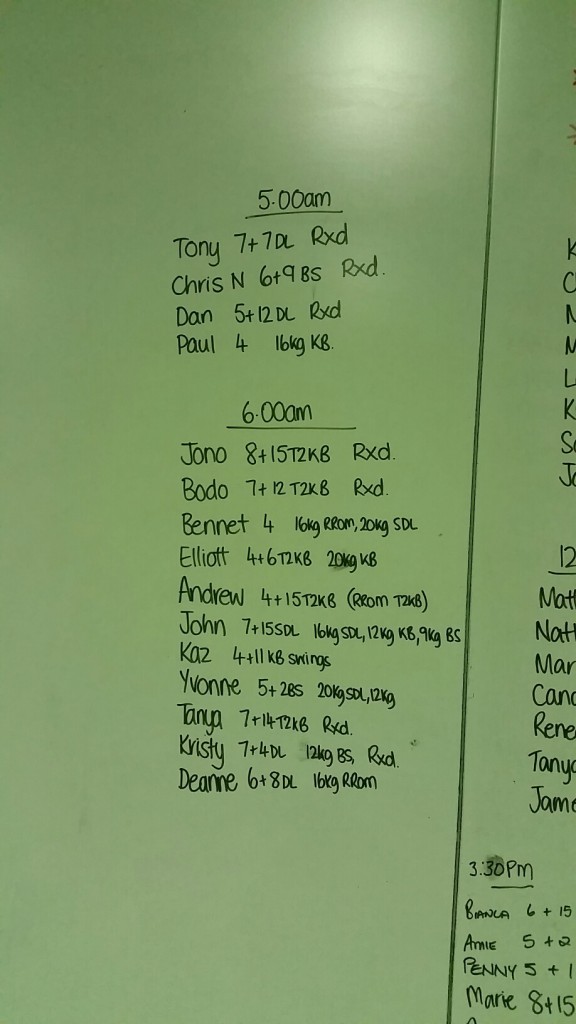 5.00am
Tony 7+7DL Rxd
Chris N 6+9 BS Rxd.
Dan 5+12 DL Rxd
Paul 4 16kg KB.
6.00am
Jono 8+15T2KB Rxd.
Bodo 7+12 T2KB Rxd.
Bennet 4 16kg RROM, 20kg SDL
Elliott 4+6T2KB 20kg KB
Andrew 4+15T2KB (RROM T2KB)
John 7+15SDL 16kg SDL, 12kg KB, 9kg BS
Kaz 4+11 KB swings
Yvonne 5+2BS 20kg SDL, 12kg
Tanya 7+14T2KB Rxd.
Kristy 7+4DL 12kg BS, Rxd.
Deanne 6+8DL 16kg RROM
12
Mar
Tanya
Jame
3:30PM
BIANCA 6 + 15
AMIE 5 + 2
PENNY 5 + 1
Marie 8+15